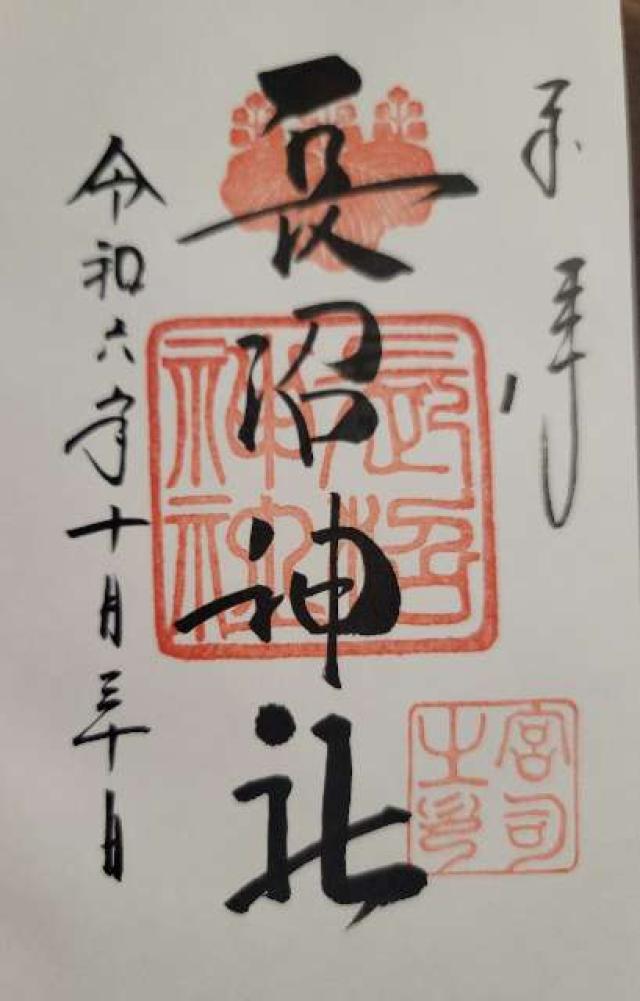 奉拝
長沼神社
令和六年十月三十日
宮司
之印